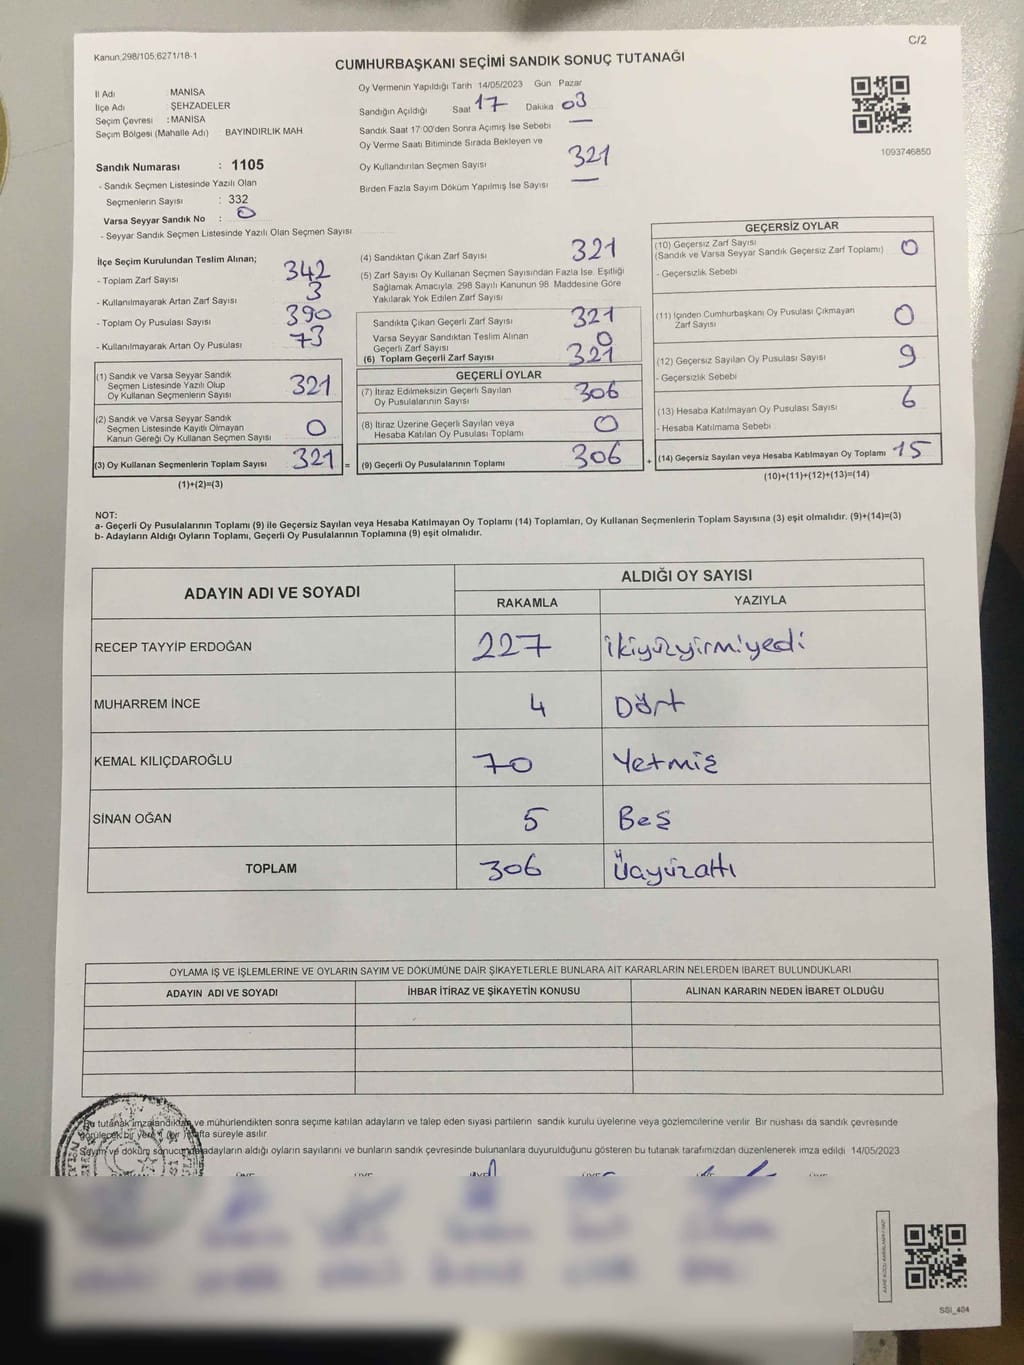 Kanun;298/105;6271/18-1
C/2
CUMHURBAŞKANI SEÇİMİ SANDIK SONUÇ TUTANAĞI
İl Adı MANİSA
İlçe Adı ŞEHZADELER
Seçim Çevresi : MANİSA
Seçim Bölgesi (Mahalle Adı) BAYINDIRLIK MAH
Sandık Numarası : 1105
- Sandık Seçmen Listesinde Yazılı Olan
Seçmenlerin Sayısı : 332
Varsa Seyyar Sandık No : 0
- Seyyar Sandık Seçmen Listesinde Yazılı Olan Seçmen Sayısı
Oy Vermenin Yapıldığı Tarih 14/05/2023 Gün Pazar
Sandığın Açıldığı Saat 17 Dakika 03
Sandık Saat 17:00'den Sonra Açımış İse Sebebi —
Oy Verme Saati Bitiminde Sırada Bekleyen ve
Oy Kullandırılan Seçmen Sayısı 321
Birden Fazla Sayım Döküm Yapılmış İse Sayısı —
1093746850
İlçe Seçim Kurulundan Teslim Alınan;
- Toplam Zarf Sayısı 342
- Kullanılmayarak Artan Zarf Sayısı 3
- Toplam Oy Pusulası Sayısı 390
- Kullanılmayarak Artan Oy Pusulası 73
(1) Sandık ve Varsa Seyyar Sandık
Seçmen Listesinde Yazılı Olup
Oy Kullanan Seçmenlerin Sayısı 321
(2) Sandık ve Varsa Seyyar Sandık
Seçmen Listesinde Kayıtlı Olmayan
Kanun Gereği Oy Kullanan Seçmen Sayısı 0
(3) Oy Kullanan Seçmenlerin Toplam Sayısı 321 =
(1)+(2)=(3)
(4) Sandıktan Çıkan Zarf Sayısı 321
(5) Zarf Sayısı Oy Kullanan Seçmen Sayısından Fazla İse, Eşitliği
Sağlamak Amacıyla, 298 Sayılı Kanunun 98. Maddesine Göre
Yakılarak Yok Edilen Zarf Sayısı
Sandıkta Çıkan Geçerli Zarf Sayısı 321
Varsa Seyyar Sandıktan Teslim Alınan
Geçerli Zarf Sayısı 0
(6) Toplam Geçerli Zarf Sayısı 321
GEÇERLİ OYLAR
(7) İtiraz Edilmeksizin Geçerli Sayılan
Oy Pusulalarının Sayısı 306
(8) İtiraz Üzerine Geçerli Sayılan veya
Hesaba Katılan Oy Pusulası Toplamı 0
(9) Geçerli Oy Pusulalarının Toplamı 306 +
GEÇERSİZ OYLAR
(10) Geçersiz Zarf Sayısı
(Sandık ve Varsa Seyyar Sandık Geçersiz Zarf Toplamı) 0
- Geçersizlik Sebebi
(11) İçinden Cumhurbaşkanı Oy Pusulası Çıkmayan
Zarf Sayısı 0
(12) Geçersiz Sayılan Oy Pusulası Sayısı 9
- Geçersizlik Sebebi
(13) Hesaba Katılmayan Oy Pusulası Sayısı 6
- Hesaba Katılmama Sebebi
(14) Geçersiz Sayılan veya Hesaba Katılmayan Oy Toplamı 15
(10)+(11)+(12)+(13)=(14)
NOT:
a- Geçerli Oy Pusulalarının Toplamı (9) ile Geçersiz Sayılan veya Hesaba Katılmayan Oy Toplamı (14) Toplamları, Oy Kullanan Seçmenlerin Toplam Sayısına (3) eşit olmalıdır. (9)+(14)=(3)
b- Adayların Aldığı Oyların Toplamı, Geçerli Oy Pusulalarının Toplamına (9) eşit olmalıdır.
ADAYIN ADI VE SOYADI ALDIĞI OY SAYISI
RAKAMLA YAZIYLA
RECEP TAYYİP ERDOĞAN 227 İkiyüzyirmiyedi
MUHARREM İNCE 4 Dört
KEMAL KILIÇDAROĞLU 70 Yetmiş
SİNAN OĞAN 5 Beş
TOPLAM 306 Üçyüzaltı
OYLAMA İŞ VE İŞLEMLERİNE VE OYLARIN SAYIM VE DÖKÜMÜNE DAİR ŞİKAYETLERLE BUNLARA AİT KARARLARIN NELERDEN İBARET BULUNDUKLARI
ADAYIN ADI VE SOYADI İHBAR İTİRAZ VE ŞİKAYETİN KONUSU ALINAN KARARIN NEDEN İBARET OLDUĞU
Bu tutanak imzalandıktan ve mühürlendikten sonra seçime katılan adayların ve talep eden siyasi partilerin sandık kurulu üyelerine veya gözlemcilerine verilir. Bir nüshası da sandık çevresinde
görülecek bir yere 1 (bir) hafta süreyle asılır
Sayım ve döküm sonucunda adayların aldığı oyların sayılarını ve bunların sandık çevresinde bulunanlara duyurulduğunu gösteren bu tutanak tarafımızdan düzenlenerek imza edildi. 14/05/2023